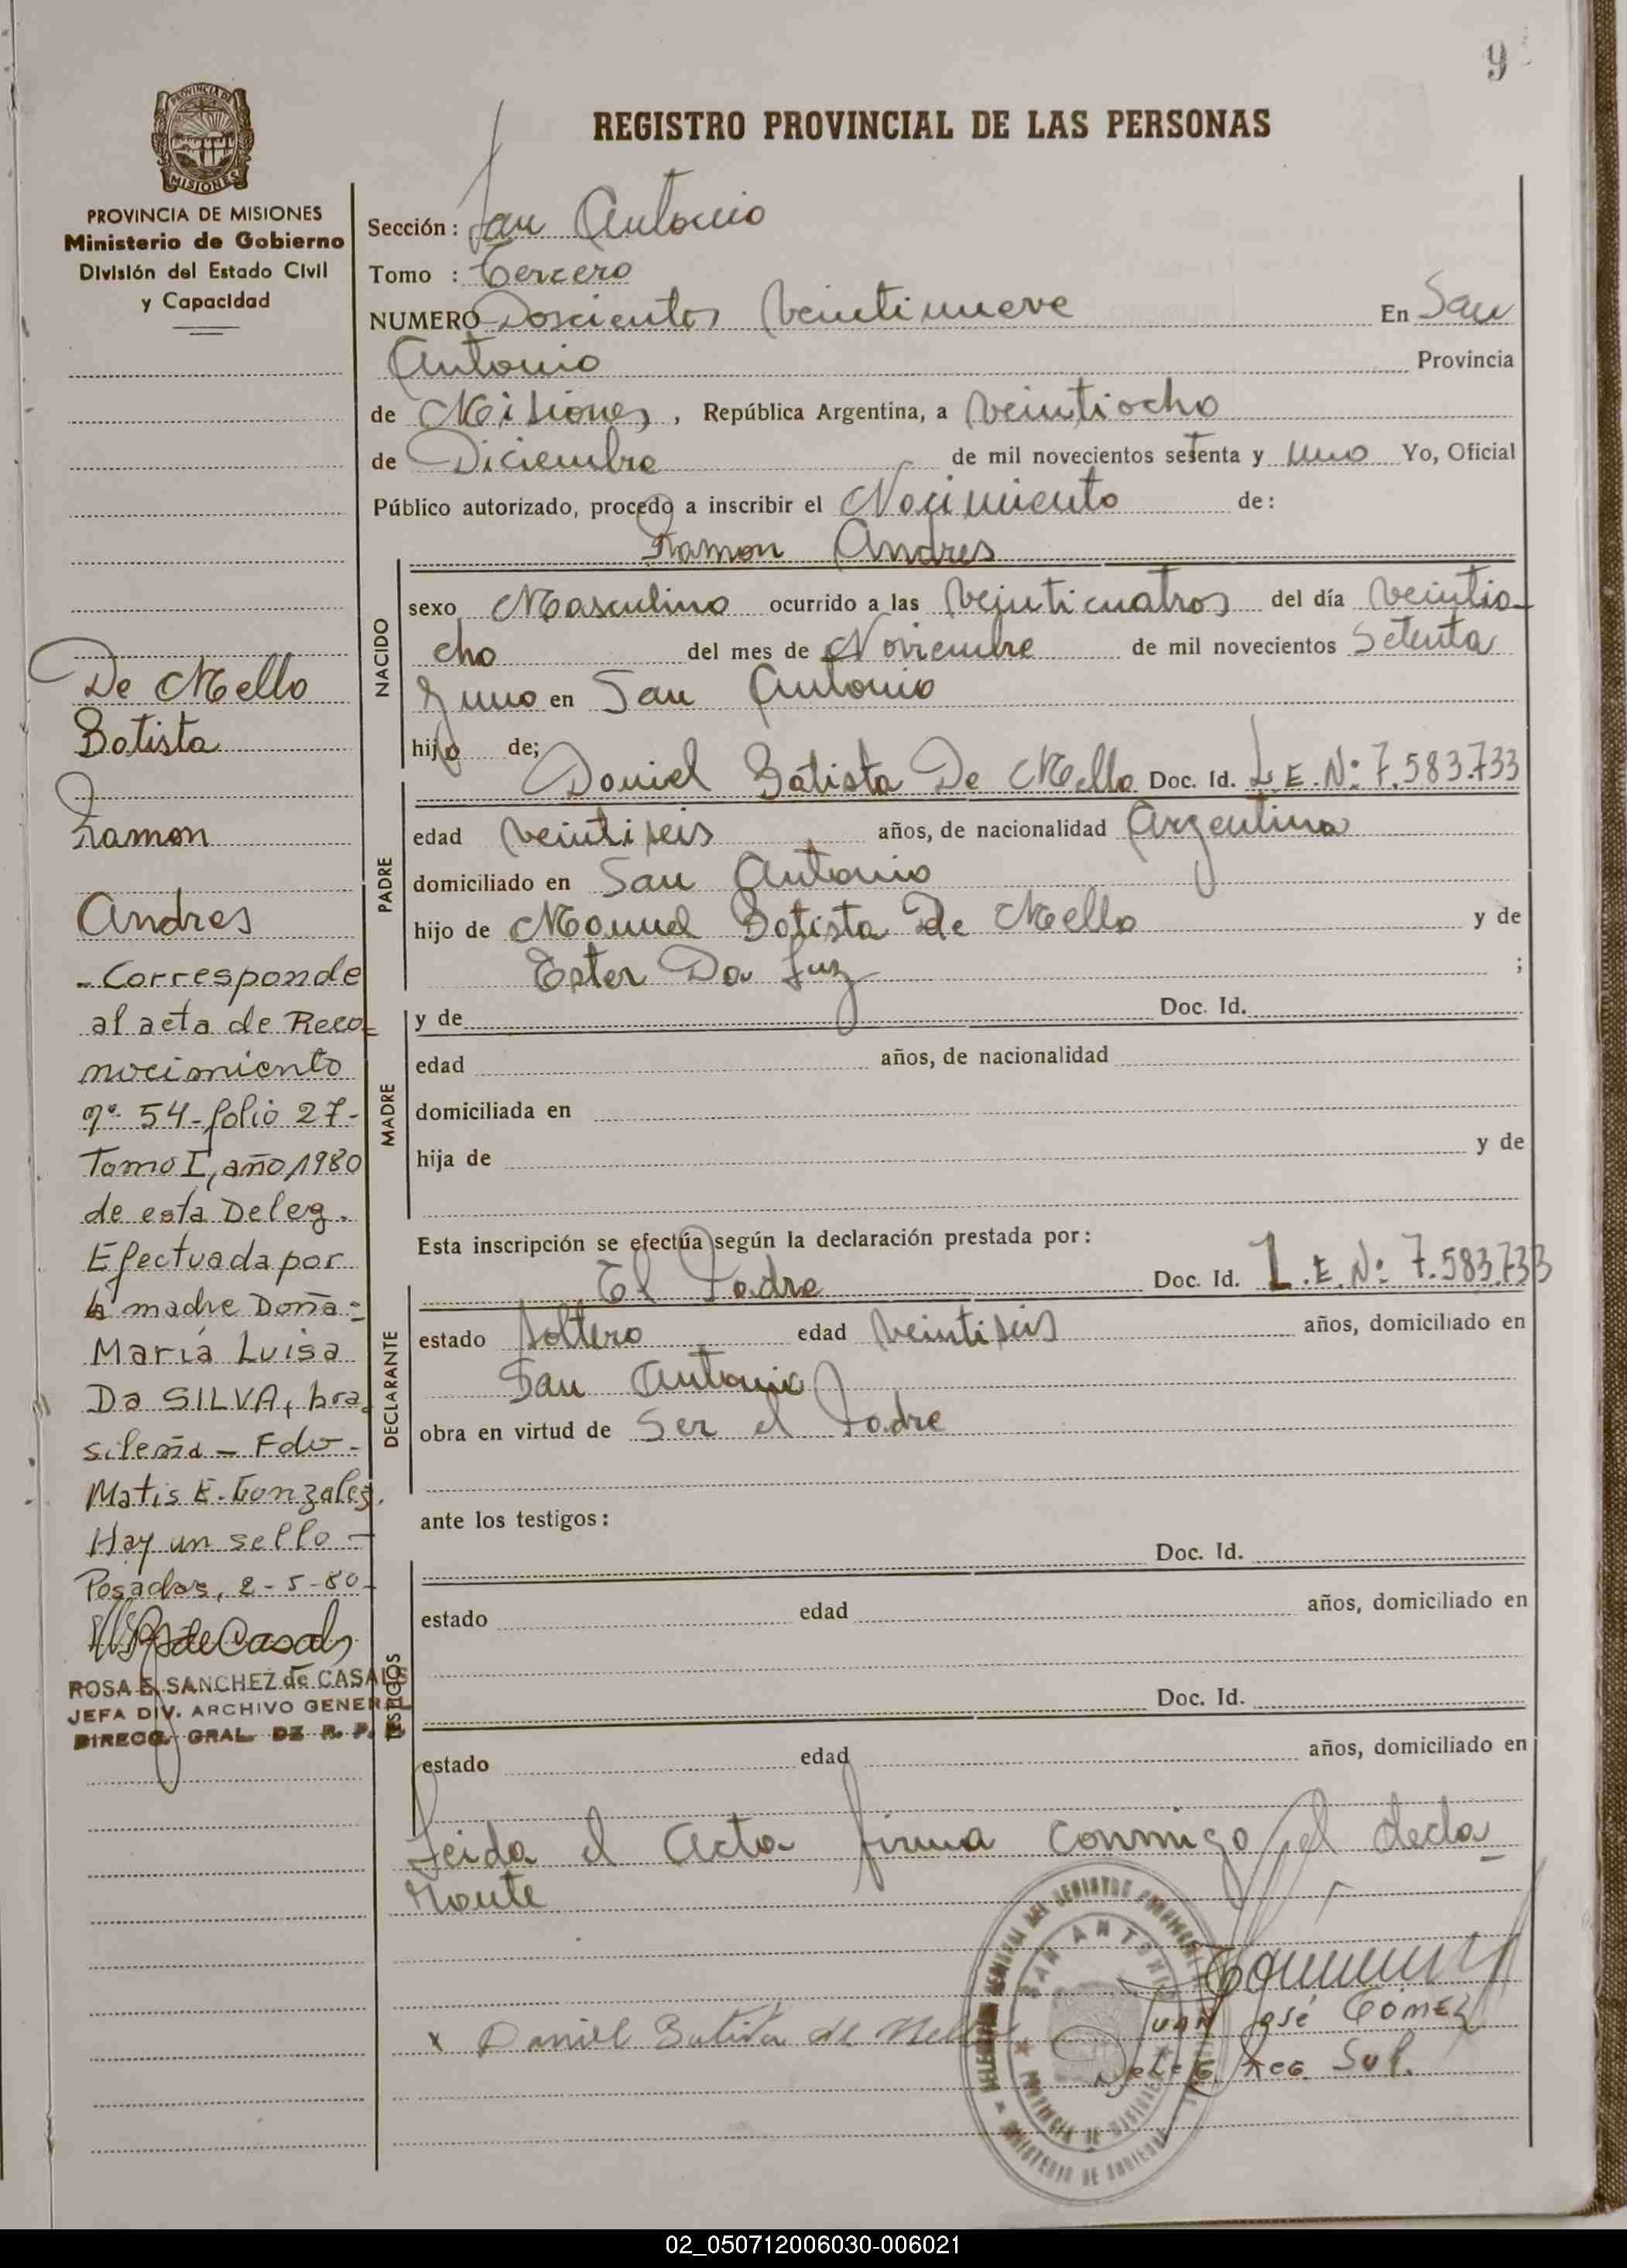 9
PROVINCIA DE
MISIONES
REGISTRO PROVINCIAL DE LAS PERSONAS
PROVINCIA DE MISIONES
Ministerio de Gobierno
División del Estado Civil
y Capacidad
Sección: San Antonio
Tomo : Tercero
NUMERO Doscientos Veintinueve En San
Antonio Provincia
de Misiones, República Argentina, a veintiocho
de Diciembre de mil novecientos setenta y uno Yo, Oficial
Público autorizado, procedo a inscribir el Nacimiento de:
Ramon Andres
NACIDO
sexo Masculino ocurrido a las Veinticuatros del día Veintio-
cho del mes de Noviembre de mil novecientos Setenta
y uno en San Antonio
hijo de;
Daniel Batista De Mello Doc. Id. L.E.Nº 7.583.733
PADRE
edad veintiseis años, de nacionalidad Argentina
domiciliado en San Antonio
hijo de Manuel Batista De Mello y de
Ester Da Luz ;
y de Doc. Id.
MADRE
edad años, de nacionalidad
domiciliada en
hija de y de
Esta inscripción se efectúa según la declaración prestada por:
El Padre Doc. Id. L.E.Nº 7.583.733
DECLARANTE
estado soltero edad veintiseis años, domiciliado en
San Antonio
obra en virtud de Ser el Padre
ante los testigos:
Doc. Id.
TESTIGOS
estado edad años, domiciliado en
Doc. Id.
estado edad años, domiciliado en
Leida el Acta firma conmigo el decla
rante
x Daniel Batista de Mello
Juan José Gómez
Deleg. Reg. Sup.
SAN ANTONIO
PROVINCIA DE MISIONES
MINISTERIO DE GOBIERNO
De Mello
Batista
Ramon
Andres
- Corresponde
al acta de Reco-
nocimiento
nº 54-folio 27-
Tomo I, año 1980
de esta Deleg.
Efectuada por
la madre Doña-
María Luisa
Da SILVA, bra-
sileña - Fdo-
Matis E. Gonzalez.
Hay un sello -
Posadas, 2-5-80-
ROSA E. SANCHEZ de CASALS
JEFA DIV. ARCHIVO GENERAL
DIRECC. GRAL. DE R. P.
02_050712006030-006021